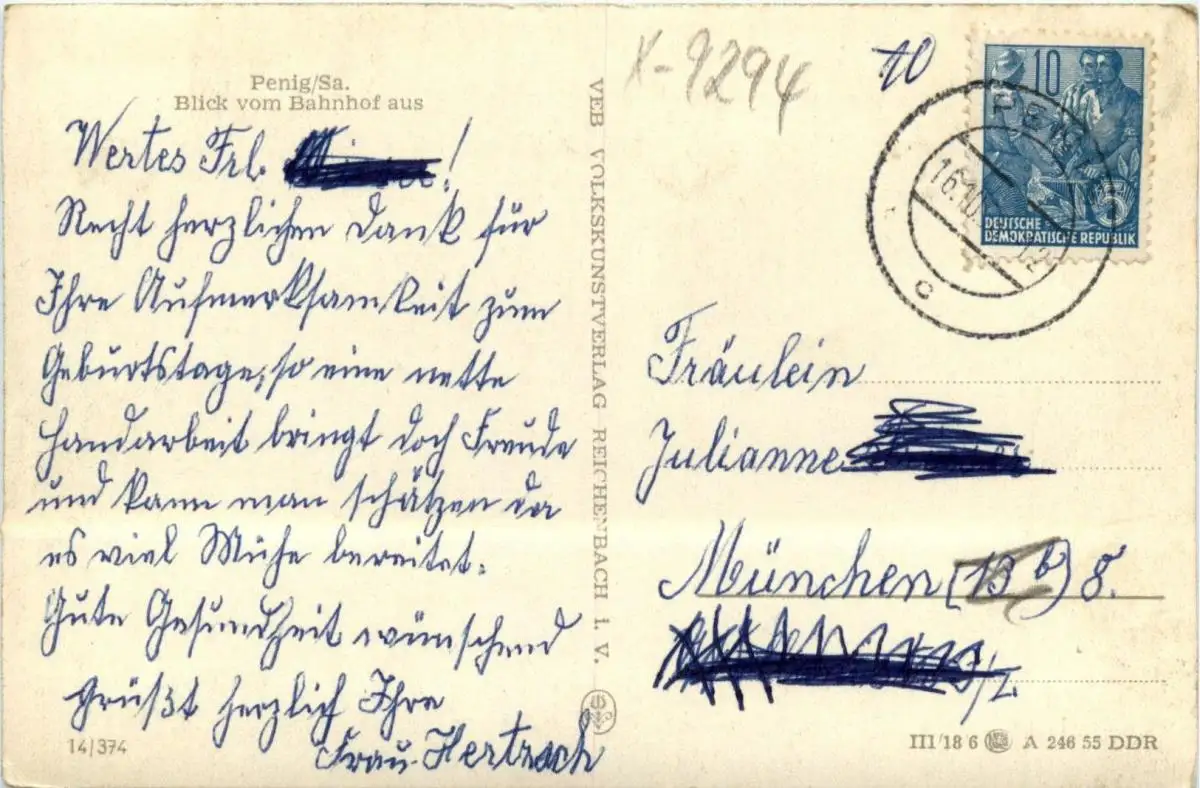 Penig/Sa.
Blick vom Bahnhof aus
Wertes Frl. !
Recht herzlichen Dank für
Ihre Aufmerksamkeit zum
Geburtstage, so eine nette
Handarbeit bringt doch Freude
und kann man schätzen da
es viel Mühe bereitet.
Gute Gesundheit wünschend
Grüßt herzlich Ihre
Frau
14/374
VEB VOLKSKUNSTVERLAG REICHENBACH I. V.
X-9294
10
10
DEUTSCHE
DEMOKRATISCHE REPUBLIK
PENIG
16.10.
c
Fräulein
Julianne
München (13b) 8.
III/18 6 A 246 55 DDR